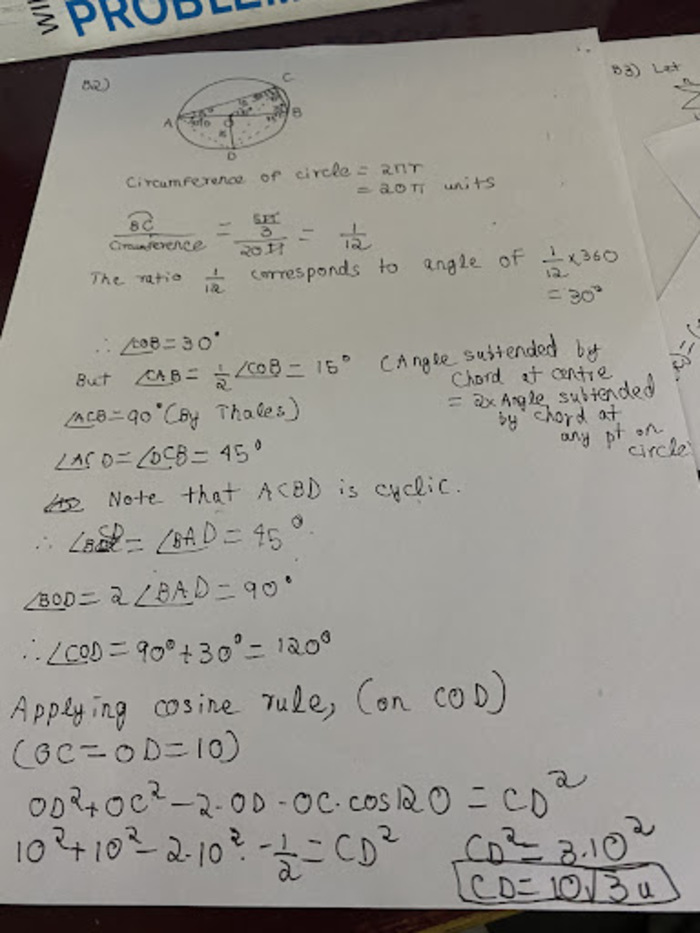 WI
PROBLEM
B2)
C
A
O
B
D
B3) Let
Circumference of circle = 2πr
= 20π units
BC / Circumference = (5π/3) / 20π = 1/12
The ratio 1/12 corresponds to angle of 1/12 × 360
= 30°
∴ ∠COB = 30°
But ∠CAB = 1/2 ∠COB = 15° (Angle subtended by
chord at centre
= 2x Angle subtended
by chord at
any pt on
circle
∠ACB = 90° (By Thales)
∠ACD = ∠DCB = 45°
Note that ACBD is cyclic.
∴ ∠BCD = ∠BAD = 45°
∠BOD = 2∠BAD = 90°
∴ ∠COD = 90° + 30° = 120°
Applying cosine rule, (on COD)
(OC = OD = 10)
OD² + OC² - 2·OD·OC·cos120 = CD²
10² + 10² - 2·10²·-1/2 = CD²
CD² = 3·10²
CD = 10√3 u